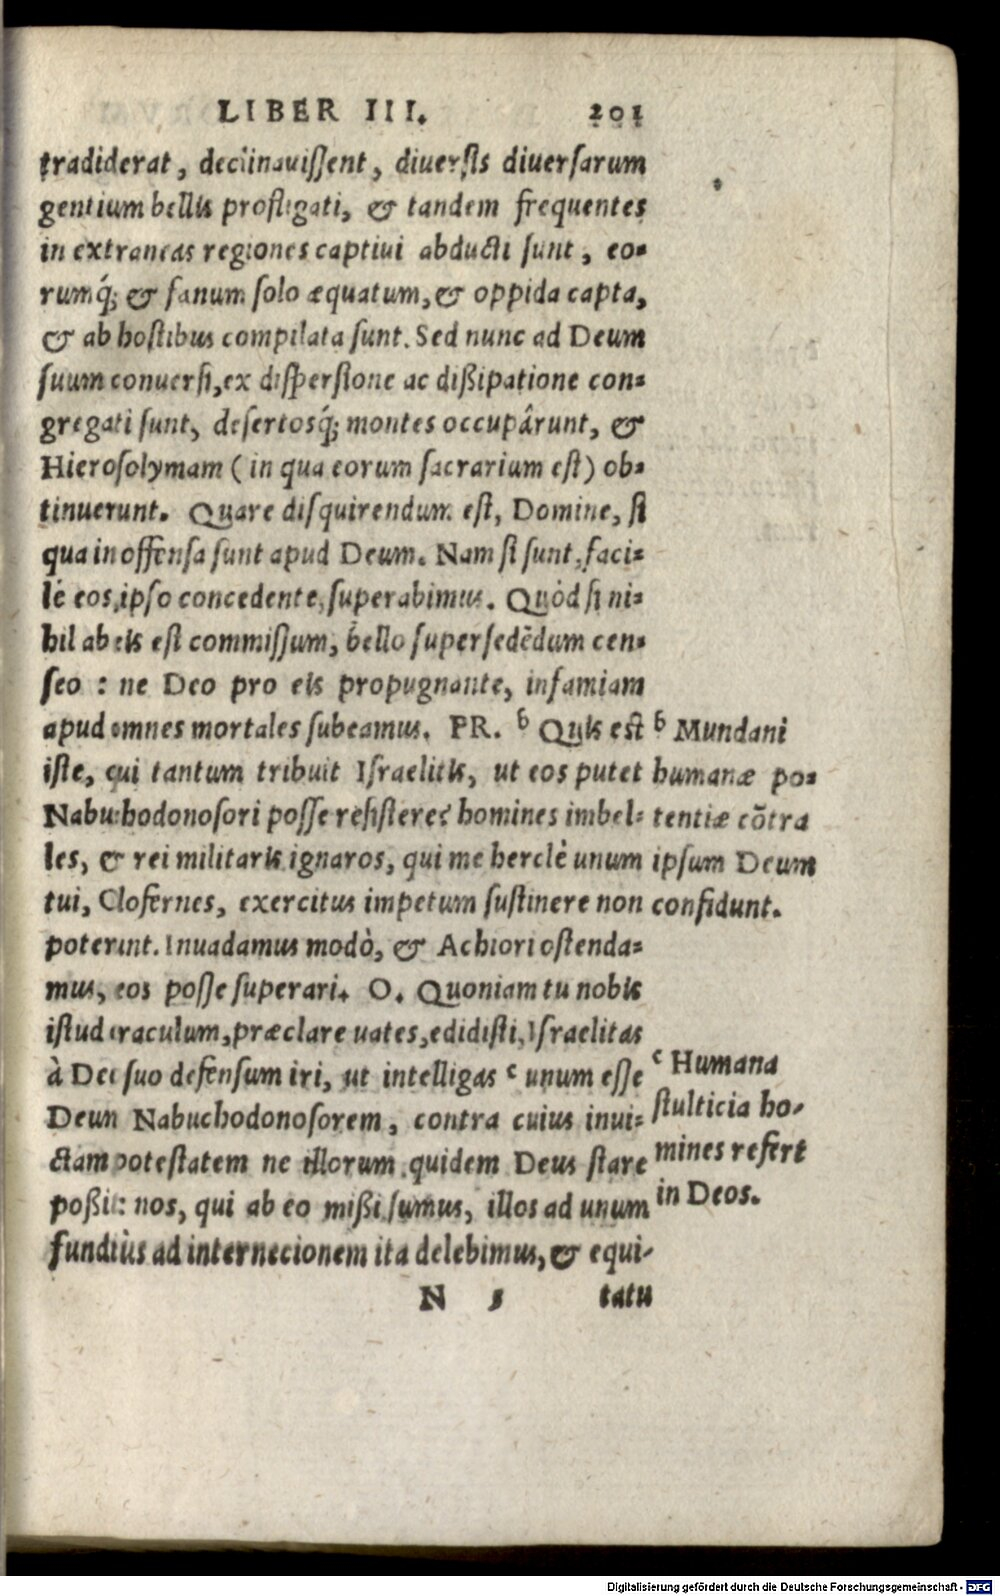 LIBER III. 201
tradiderat, declinauissent, diuersis diuersarum
gentium bellis profligati, & tandem frequentes
in extraneas regiones captiui abducti sunt, eo-
rumq́; & fanum solo æquatum, & oppida capta,
& ab hostibus compilata sunt. Sed nunc ad Deum
suum conuersi, ex dispersione ac dißipatione con-
gregati sunt, desertosq́; montes occupârunt, &
Hierosolymam (in qua eorum sacrarium est) ob-
tinuerunt. Quare disquirendum est, Domine, si
qua in offensa sunt apud Deum. Nam si sunt, faci-
lè eos, ipso concedente, superabimus. Quòd si ni-
hil ab eis est commissum, bello supersedēdum cen-
seo : ne Deo pro eis propugnante, infamiam
apud omnes mortales subeamus. PR. ᵇ Quis est
iste, qui tantum tribuit Israelitis, ut eos putet
Nabuchodonosori posse resistere? homines imbel-
les, & rei militaris ignaros, qui me herclè unum
tui, Olofernes, exercitus impetum sustinere non
poterunt. Inuadamus modò, & Achiori ostenda-
mus, eos posse superari. O. Quoniam tu nobis
istud oraculum, præclare uates, edidisti, Israelitas
à Deo suo defensum iri, ut intelligas ᶜ unum esse
Deum Nabuchodonosorem, contra cuius inui-
ctam potestatem ne illorum quidem Deus stare
poßit: nos, qui ab eo mißi sumus, illos ad unum
funditùs ad internecionem ita delebimus, & equi-
N 5 tatu
ᵇ Mundani
humanæ po-
tentiæ cōtra
ipsum Deum
confidunt.
ᶜ Humana
stulticia ho-
mines refert
in Deos.
Digitalisierung gefördert durch die Deutsche Forschungsgemeinschaft - DFG